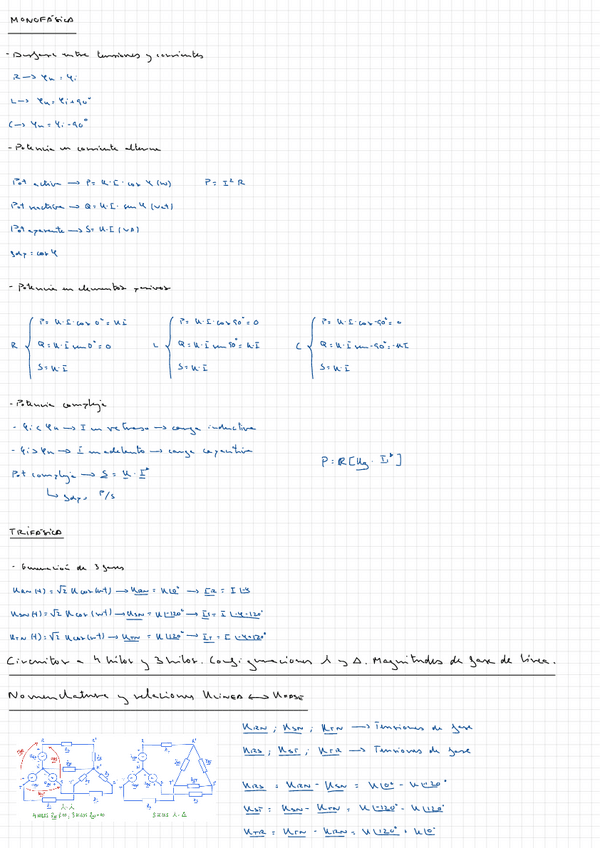 MONOFÁSICA
- Desfase entre tensiones y corrientes
R → φu = φi
L → φu = φi + 90°
C → φu = φi - 90°
- Potencia en corriente alterna
Pot activa → P = U·I·cos φ (W) P = I² R
Pot reactiva → Q = U·I· sen φ (VAr)
Pot aparente → S = U·I (VA)
fdp = cos φ
- Potencia en elementos pasivos
R { P = U·I·cos 0° = UI
Q = U·I sen 0° = 0
S = U·I
L { P = U·I·cos 90° = 0
Q = U·I sen 90° = U·I
S = U·I
C { P = U·I cos -90° = 0
Q = U·I sen -90° = -UI
S = U·I
- Potencia compleja
- φi < φu → I en retraso → carga inductiva
- φi > φu → I en adelanto → carga capacitiva
Pot compleja → S = U · I*
↳ fdp = P/S
P = R[Ug · I*]
TRIFÁSICA
- Generación de 3 fases
URN (t) = √2 U cos (wt) → URN = U|0° → IR = I |-φ
USN (t) = √2 U cos (wt) → USN = U|-120° → IS = I |-φ-120°
UTN (t) = √2 U cos (wt) → UTN = U|120° → IT = I |-φ+120°
Circuitos a 4 hilos y 3 hilos. Configuraciones λ y Δ. Magnitudes de fase de línea.
Nomenclatura y relaciones ULINEA ↔ UFASE
URN ; USN ; UTN → Tensiones de fase
URS ; UST ; UTR → Tensiones de fase
URS = URN - USN = U|0° - U|-120°
UST = USN - UTN = U|-120° - U|120°
UTR = UTN - URN = U|120° + U|0°
λ-λ
3 hilos λ-Δ